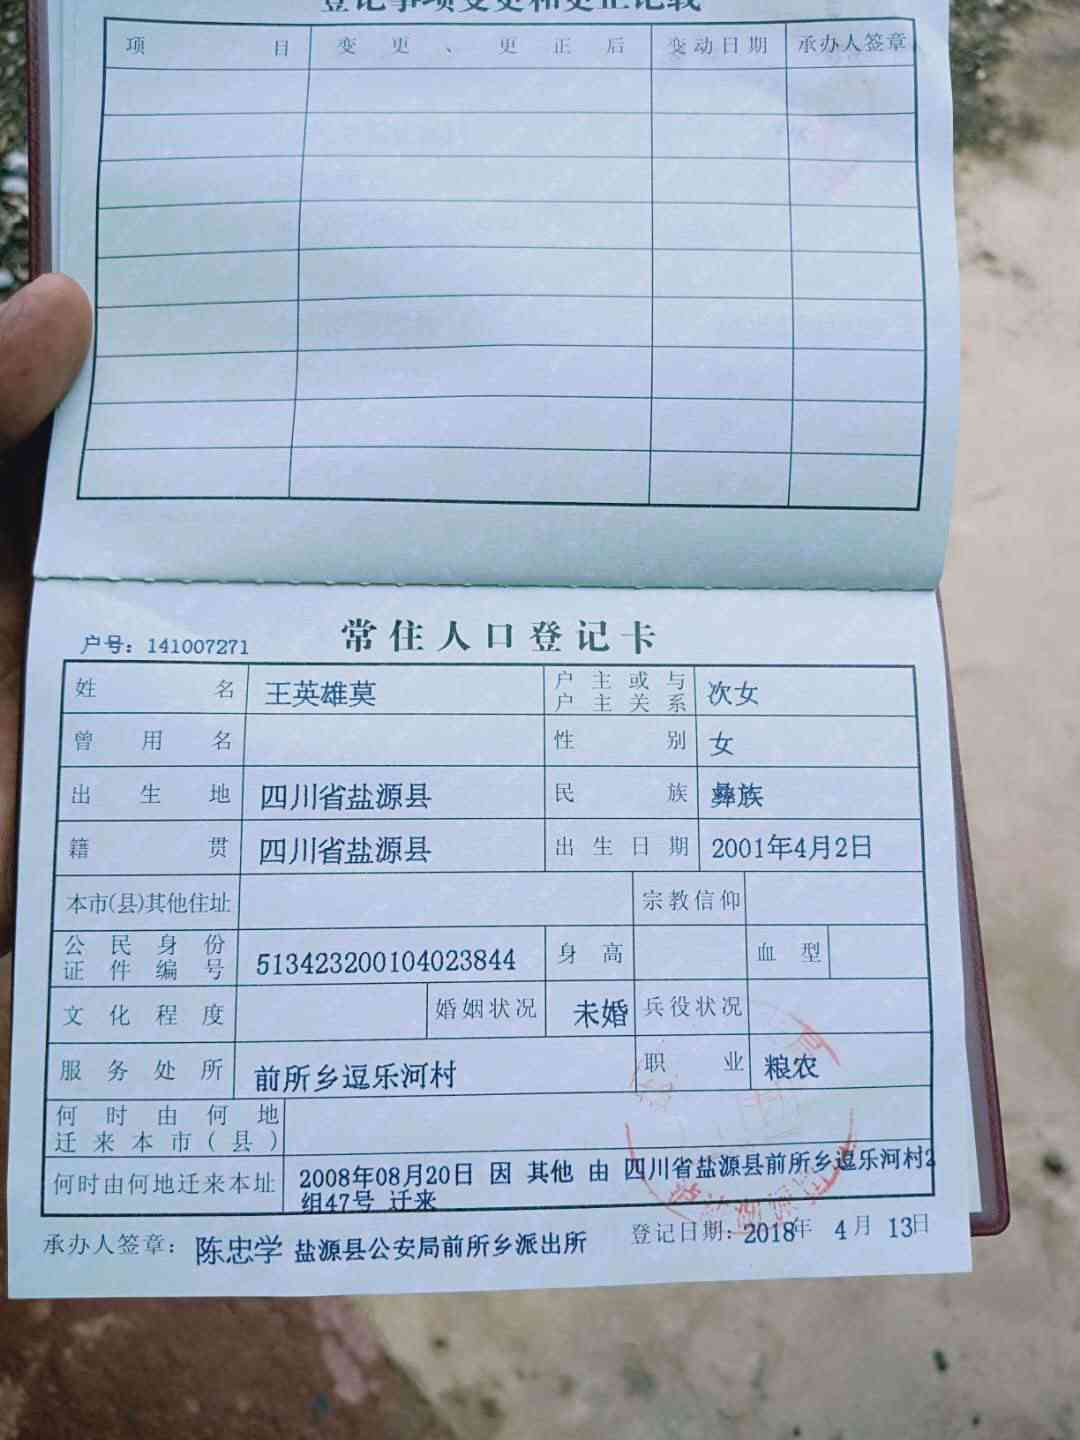 登记事项变更和更正记载
项目 变更、更正后 变动日期 承办人签章
常住人口登记卡
户号：141007271
姓名 王英雄莫 户主或与户主关系 次女
曾用名 性别 女
出生地 四川省盐源县 民族 彝族
籍贯 四川省盐源县 出生日期 2001年4月2日
本市(县)其他住址 宗教信仰
公民身份证件编号 513423200104023844 身高 血型
文化程度 婚姻状况 未婚 兵役状况
服务处所 前所乡逗乐河村 职业 粮农
何时由何地迁来本市(县)
何时由何地迁来本址 2008年08月20日 因 其他 由 四川省盐源县前所乡逗乐河村2
组47号 迁来
承办人签章：陈忠学 盐源县公安局前所乡派出所 登记日期：2018年 4月 13日